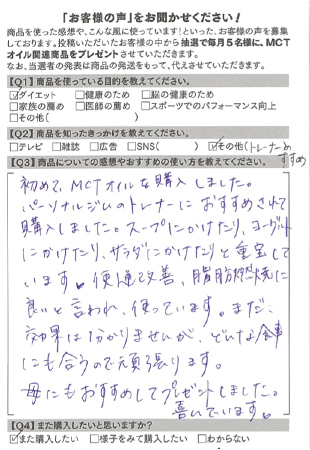 「お客様の声」をお聞かせください!
商品を使った感想や、こんな風に使っています!といった、お客様の声を募集
しております。投稿いただいたお客様の中から抽選で毎月5名様に、MCT
オイル関連商品をプレゼントさせていただきます。
なお、当選者の発表は商品の発送をもって、代えさせていただきます。
【Q1】商品を使っている目的を教えてください。
☑ダイエット □健康のため □脳の健康のため
□家族の薦め □医師の薦め □スポーツでのパフォーマンス向上
□その他( )
【Q2】商品を知ったきっかけを教えてください。
□テレビ □雑誌 □広告 □SNS( ) ☑その他(トレーナーの
すすめ
【Q3】商品についての感想やおすすめの使い方を教えてください。
初めて、MCTオイルを購入しました。
パーソナルジムのトレーナーにおすすめされて
購入しました。スープにかけたり、ヨーグルト
にかけたり、サラダにかけたりと重宝して
います。便通改善、脂肪燃焼に
良いと言われ、使っています。まだ、
効果は分かりませんが、どんな食事
にも合うので頑張ります。
母にもおすすめしてプレゼントしました。
喜んでいます。
【Q4】また購入したいと思いますか?
☑また購入したい □様子をみて購入したい □わからない